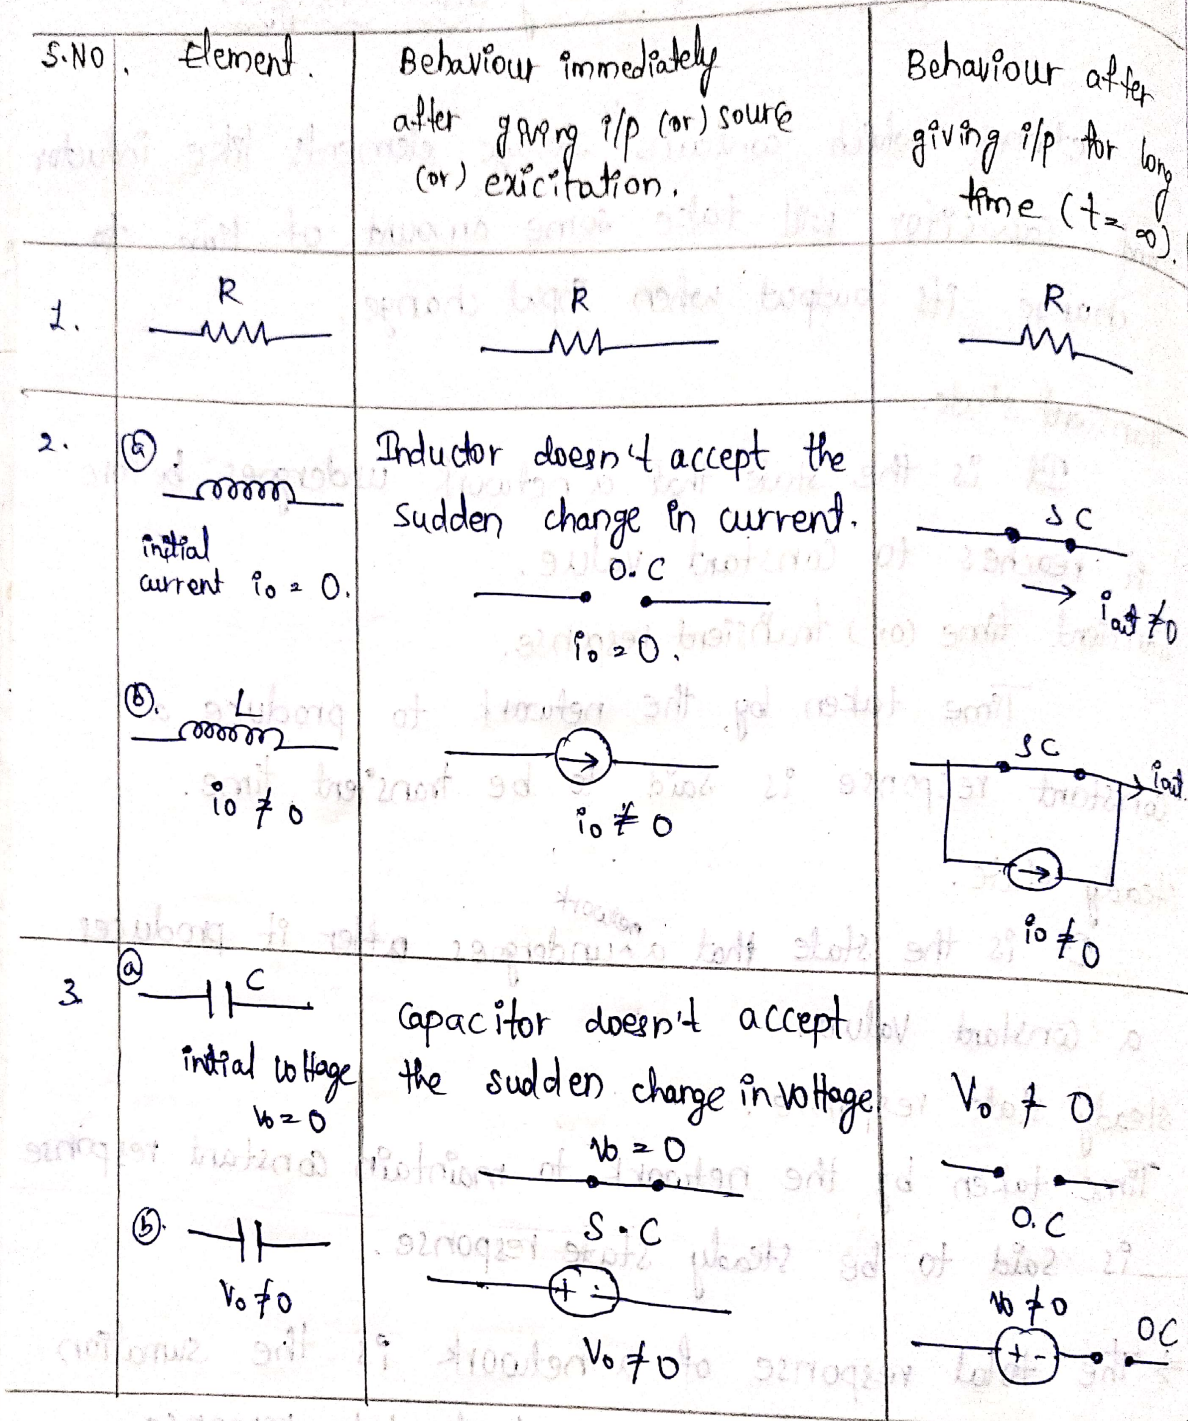 S.NO. Element. Behaviour immediately after giving i/p (or) sourse (or) exicitation. Behaviour after giving i/p for long time (t=∞).
1. R R R
2. ⓐ.
initial
current i₀ = 0.
Inductor doesn't accept the
sudden change in current.
O.C
i₀ = 0.
SC
→ i aut ≠ 0
ⓑ. L
i₀ ≠ 0
i₀ ≠ 0
SC
iout.
i₀ ≠ 0
3. ⓐ C
initial voltage
V₀ = 0
Capacitor doesn't accept
the sudden change in voltage
V₀ = 0
S.C
V₀ ≠ 0
O.C
ⓑ.
V₀ ≠ 0
+ -
V₀ ≠ 0
V₀ ≠ 0
+ -
OC